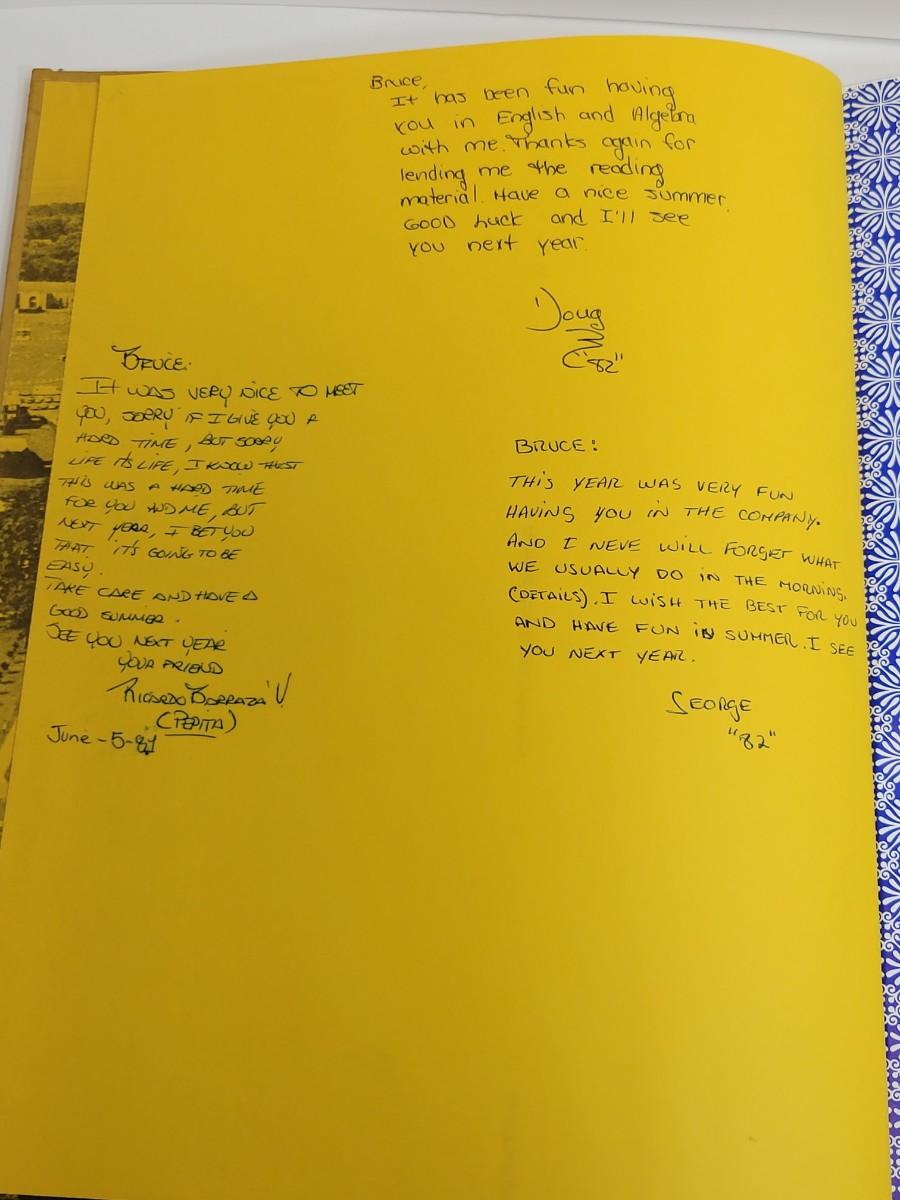 Bruce,
It has been fun having
you in English and Algebra
with me. Thanks again for
lending me the reading
material. Have a nice summer.
GOOD Luck and I'll see
you next year.
Doug
"82"
BRUCE:
It WAS VERY NICE TO MEET
YOU, SORRY IF I GIVE YOU A
HARD TIME, BUT SORRY
LIFE ITS LIFE, I KNOW THAT
THIS WAS A HARD TIME
FOR YOU AND ME, BUT
NEXT YEAR, I BET YOU
THAT IT'S GOING TO BE
EASY.
TAKE CARE AND HAVE A
GOOD SUMMER.
SEE YOU NEXT YEAR
YOUR FRIEND
RICARDO BARRAZA V
(PEPITA)
June-5-81
BRUCE:
THIS YEAR WAS VERY FUN
HAVING YOU IN THE COMPANY.
AND I NEVE WILL FORGET WHAT
WE USUALLY DO IN THE MORNING.
(DETAILS). I WISH THE BEST FOR YOU
AND HAVE FUN IN SUMMER. I SEE
YOU NEXT YEAR.
GEORGE
"82"